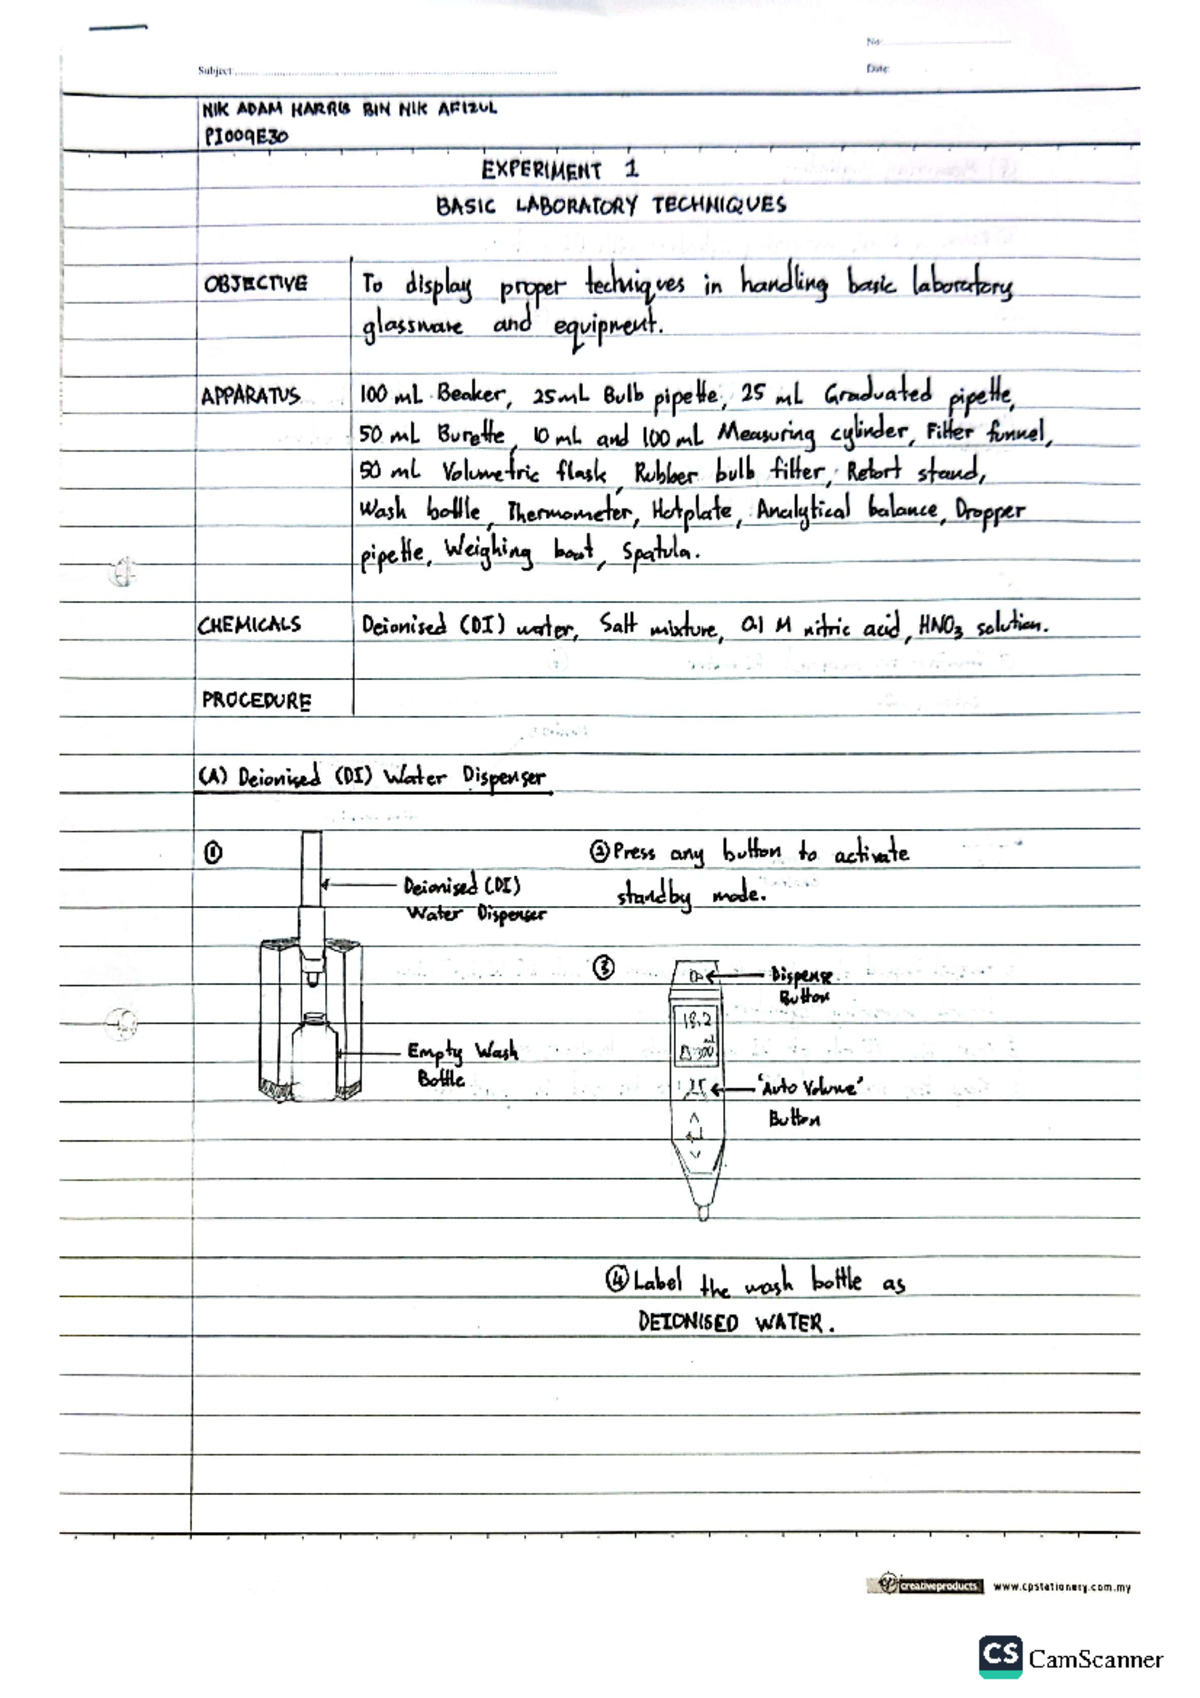 No:
Subject:
Date:
NIK ADAM HARRIS BIN NIK AFIZUL
PI009E30
EXPERIMENT 1
BASIC LABORATORY TECHNIQUES
OBJECTIVE To display proper techniques in handling basic laboratory
glassware and equipment.
APPARATUS 100 mL Beaker, 25mL Bulb pipette, 25 mL Graduated pipette,
50 mL Burette, 10 mL and 100 mL Measuring cylinder, Filter funnel,
50 mL Volumetric flask, Rubber bulb filter, Retort stand,
Wash bottle, Thermometer, Hotplate, Analytical balance, Dropper
pipette, Weighing boat, Spatula.
CHEMICALS Deionised (DI) water, Salt mixture, 0.1 M nitric acid, HNO₃ solution.
PROCEDURE
(A) Deionised (DI) Water Dispenser
①
Deionised (DI)
Water Dispenser
Empty Wash
Bottle
② Press any button to activate
standby mode.
③
Dispense
Button
18.2
mL
300
'Auto Volume'
Button
④ Label the wash bottle as
DEIONISED WATER.
creativeproducts www.cpstationery.com.my
CS CamScanner